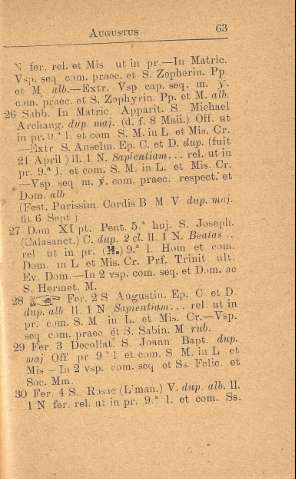 AUGUSTUS 63
N fer. rel. et Mis ut in pr.—In Matric.
Vsp. seq com. praec. et S. Zepherin. Pp.
et M alb.—Extr. Vsp cap. seq. m. ỹ.
com. praec. et S. Zephyrin. Pp. et M. alb.
26 Sabb. In Matric Apparit. S. Michael
Archang. dup. maj. (d. f. 8 Maii.) Off. ut
in pr. 9.ª l. et com S. M. in L et Mis. Cr.
—Extr S. Anselm. Ep. C. et D. dup. (fuit
21 April) ll. 1 N. Sapientiam... rel. ut in
pr. 9.ª l. et com. S. M. in L. et Mis. Cr.
—Vsp seq m. ỹ. com. praec. respect. et
Dom. alb
(Fest. Purissim Cordis B M V dup. maj.
fit 6 Sept)
27 Dom XI pt. Pent. 5.ª huj. S. Joseph.
(Calasanct.) C. dup. 2 cl. ll. 1 N. Beatus..
rel ut in pr. (M.) 9.ª l. Hom et com.
Dom. in L et Mis. Cr. Prf. Trinit ult.
Ev. Dom.—In 2 vsp. com. seq. et Dom. ac
S. Hermet. M.
28 Fer. 2 S Augustin. Ep. C et D.
dup. alb ll. 1 N Sapientiam... rel. ut in
pr. com. S. M in L et Mis. Cr.—Vsp.
seq com. praec ét S. Sabin. M rub.
29 Fer 3 Decollat. S. Joann Bapt. dup.
maj Off pr 9.ª l et com S. M. in L et
Mis—In 2 vsp. com. seq et Ss. Felic. et
Soc. Mm.
30 Fer. 4 S. Rosae (Liman.) V. dup. alb. ll.
1 N fer. rel. ut in pr. 9.ª l. et com. Ss.